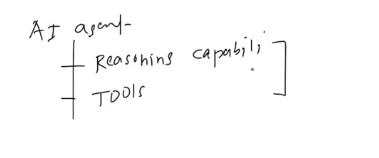 AI agent
Reasoning capabili
TOOLS